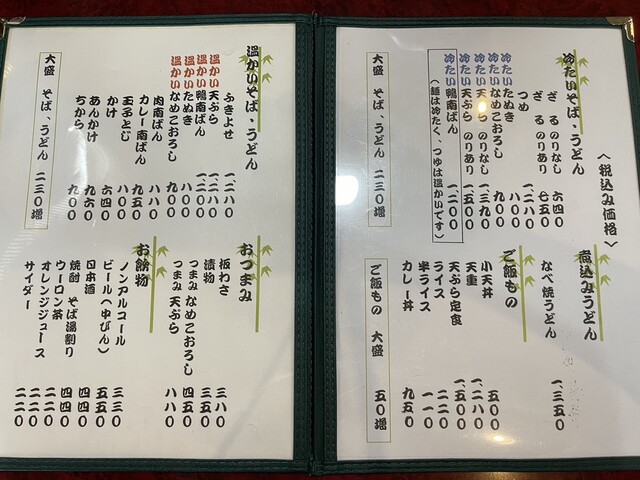 〈税込み価格〉
冷たいそば・うどん
ざる のりなし 六四〇
ざる のりあり 七五〇
つめ 一二八〇
冷たいたぬき 八〇〇
冷たいなめこおろし 九〇〇
冷たい天ぷら のりなし 一三九〇
冷たい天ぷら のりあり 一五〇〇
冷たい鴨南ばん 一二〇〇
(麺は冷たく、つゆは温かいです)
大盛 そば、うどん 二三〇増
煮込みうどん
なべ焼うどん 一三五〇
ご飯もの
小天丼 五〇〇
天重 一二八〇
天ぷら定食 一五〇〇
ライス 二二〇
半ライス 一一〇
カレー丼 九五〇
ご飯もの 大盛 五〇増
温かいそば・うどん
ふきよせ 一二八〇
温かい天ぷら 一二八〇
温かい鴨南ばん 一二〇〇
温かいたぬき 八〇〇
温かいなめこおろし 九〇〇
肉南ばん 八八〇
カレー南ばん 九五〇
玉子とじ 八〇〇
かけ 六四〇
あんかけ 九六〇
ちから 九〇〇
大盛 そば、うどん 二三〇増
おつまみ
板わさ 三八〇
漬物 三五〇
つまみ なめこおろし 四五〇
つまみ 天ぷら 八八〇
お飲物
ノンアルコール 三三〇
ビール(中びん) 五五〇
日本酒 四四〇
焼酎 そば湯割り 四四〇
ウーロン茶 二二〇
オレンジジュース 二二〇
サイダー 二二〇